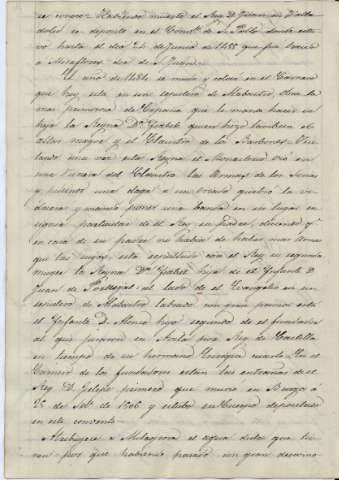 se conoce. Habiendo muerto el Rey D. Juan en Valla
dolid se deposito en el Convto. de S. Pablo donde estu
vo hasta el dia 24 de Junio de 1455 que fue traido
a Miraflores dia de S. Juan.
El año de se mudo y coloco en el Carnero
que hoy esta en un sepulcro de Alabastro, Obra la
mas primorosa de España que le mando hacer su
hija la Reyna Da. Ysabel quien hizo tambien el
altar mayor y el Claustro de la Visi
tando una vez esta Reyna el Monasterio vio en
una del Claustro las Armas de los
y pidiendo una daga a un criado quebro la vi
driera y mando poner una banda en su lugar in
signia particular de el Rey su padre, diciendo qe.
en casa de su padre no habia de haber mas armas
que las suyas, esta sepultada con el Rey su segunda
muger la Reyna Da. Ysabel hija de el Ynfante D.
Juan de Portugal. Al lado de el Evangelio en un
sepulcro de Alabastro labrado con gran primor esta
el Ynfante D. Alonso hijo segundo de el fundador
al que juraron en Avila por Rey de Castilla
en tiempo de su hermano Enrique cuarto. En el
Carnero de los fundadores estan las entrañas de el
Rey D. Felipe primero que murio en Burgos a
25 de Sbre. de 1506 y estubo su Cuerpo depositado
en este convento.
Atribuyese a Milagrosa el agua dulce que tie
nen por que habiendo parado un gran